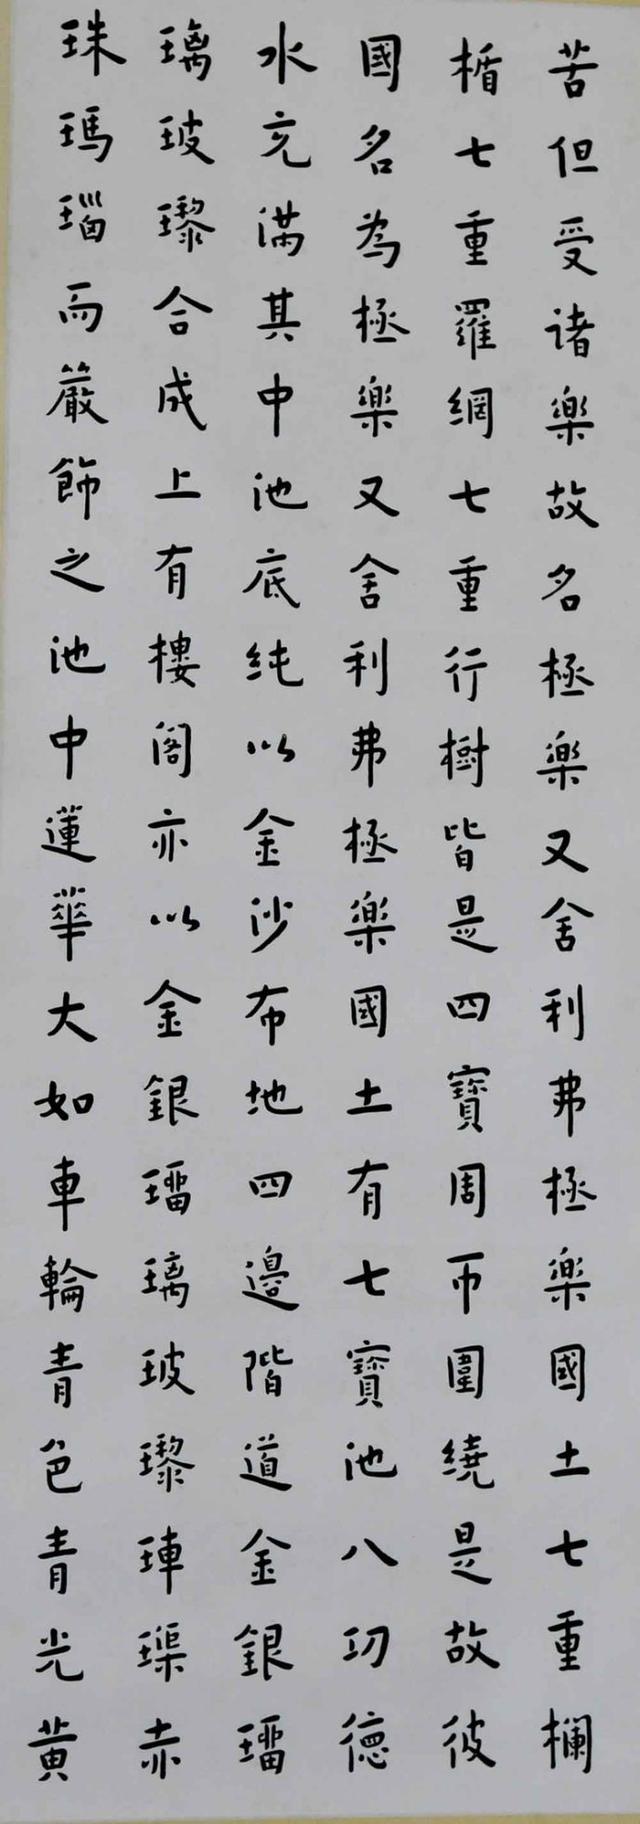 苦但受诸樂故名極樂又舍利弗極樂國土七重欄
楯七重羅網七重行樹皆是四寶周帀圍繞是故彼
國名為極樂又舍利弗極樂國土有七寶池八功德
水充滿其中池底純以金沙布地四邊階道金銀瑠
璃玻瓈合成上有樓閣亦以金銀瑠璃玻瓈硨磲赤
珠瑪瑙而嚴飾之池中蓮華大如車輪青色青光黄